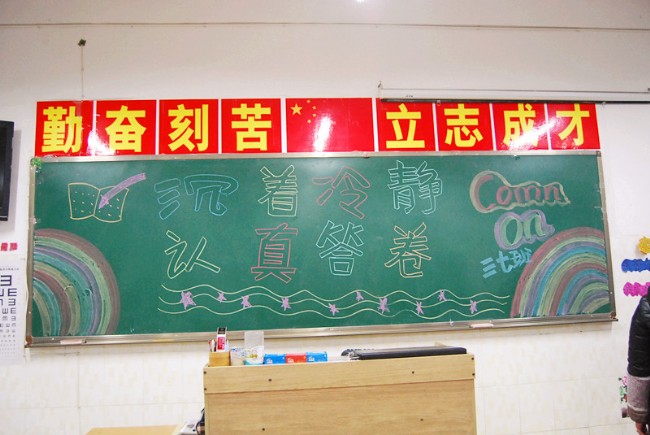 勤奋刻苦 立志成才
沉着冷静
认真答卷
Comn
on
三七班